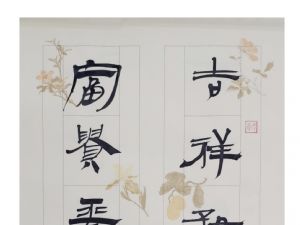 吉祥
富貴平